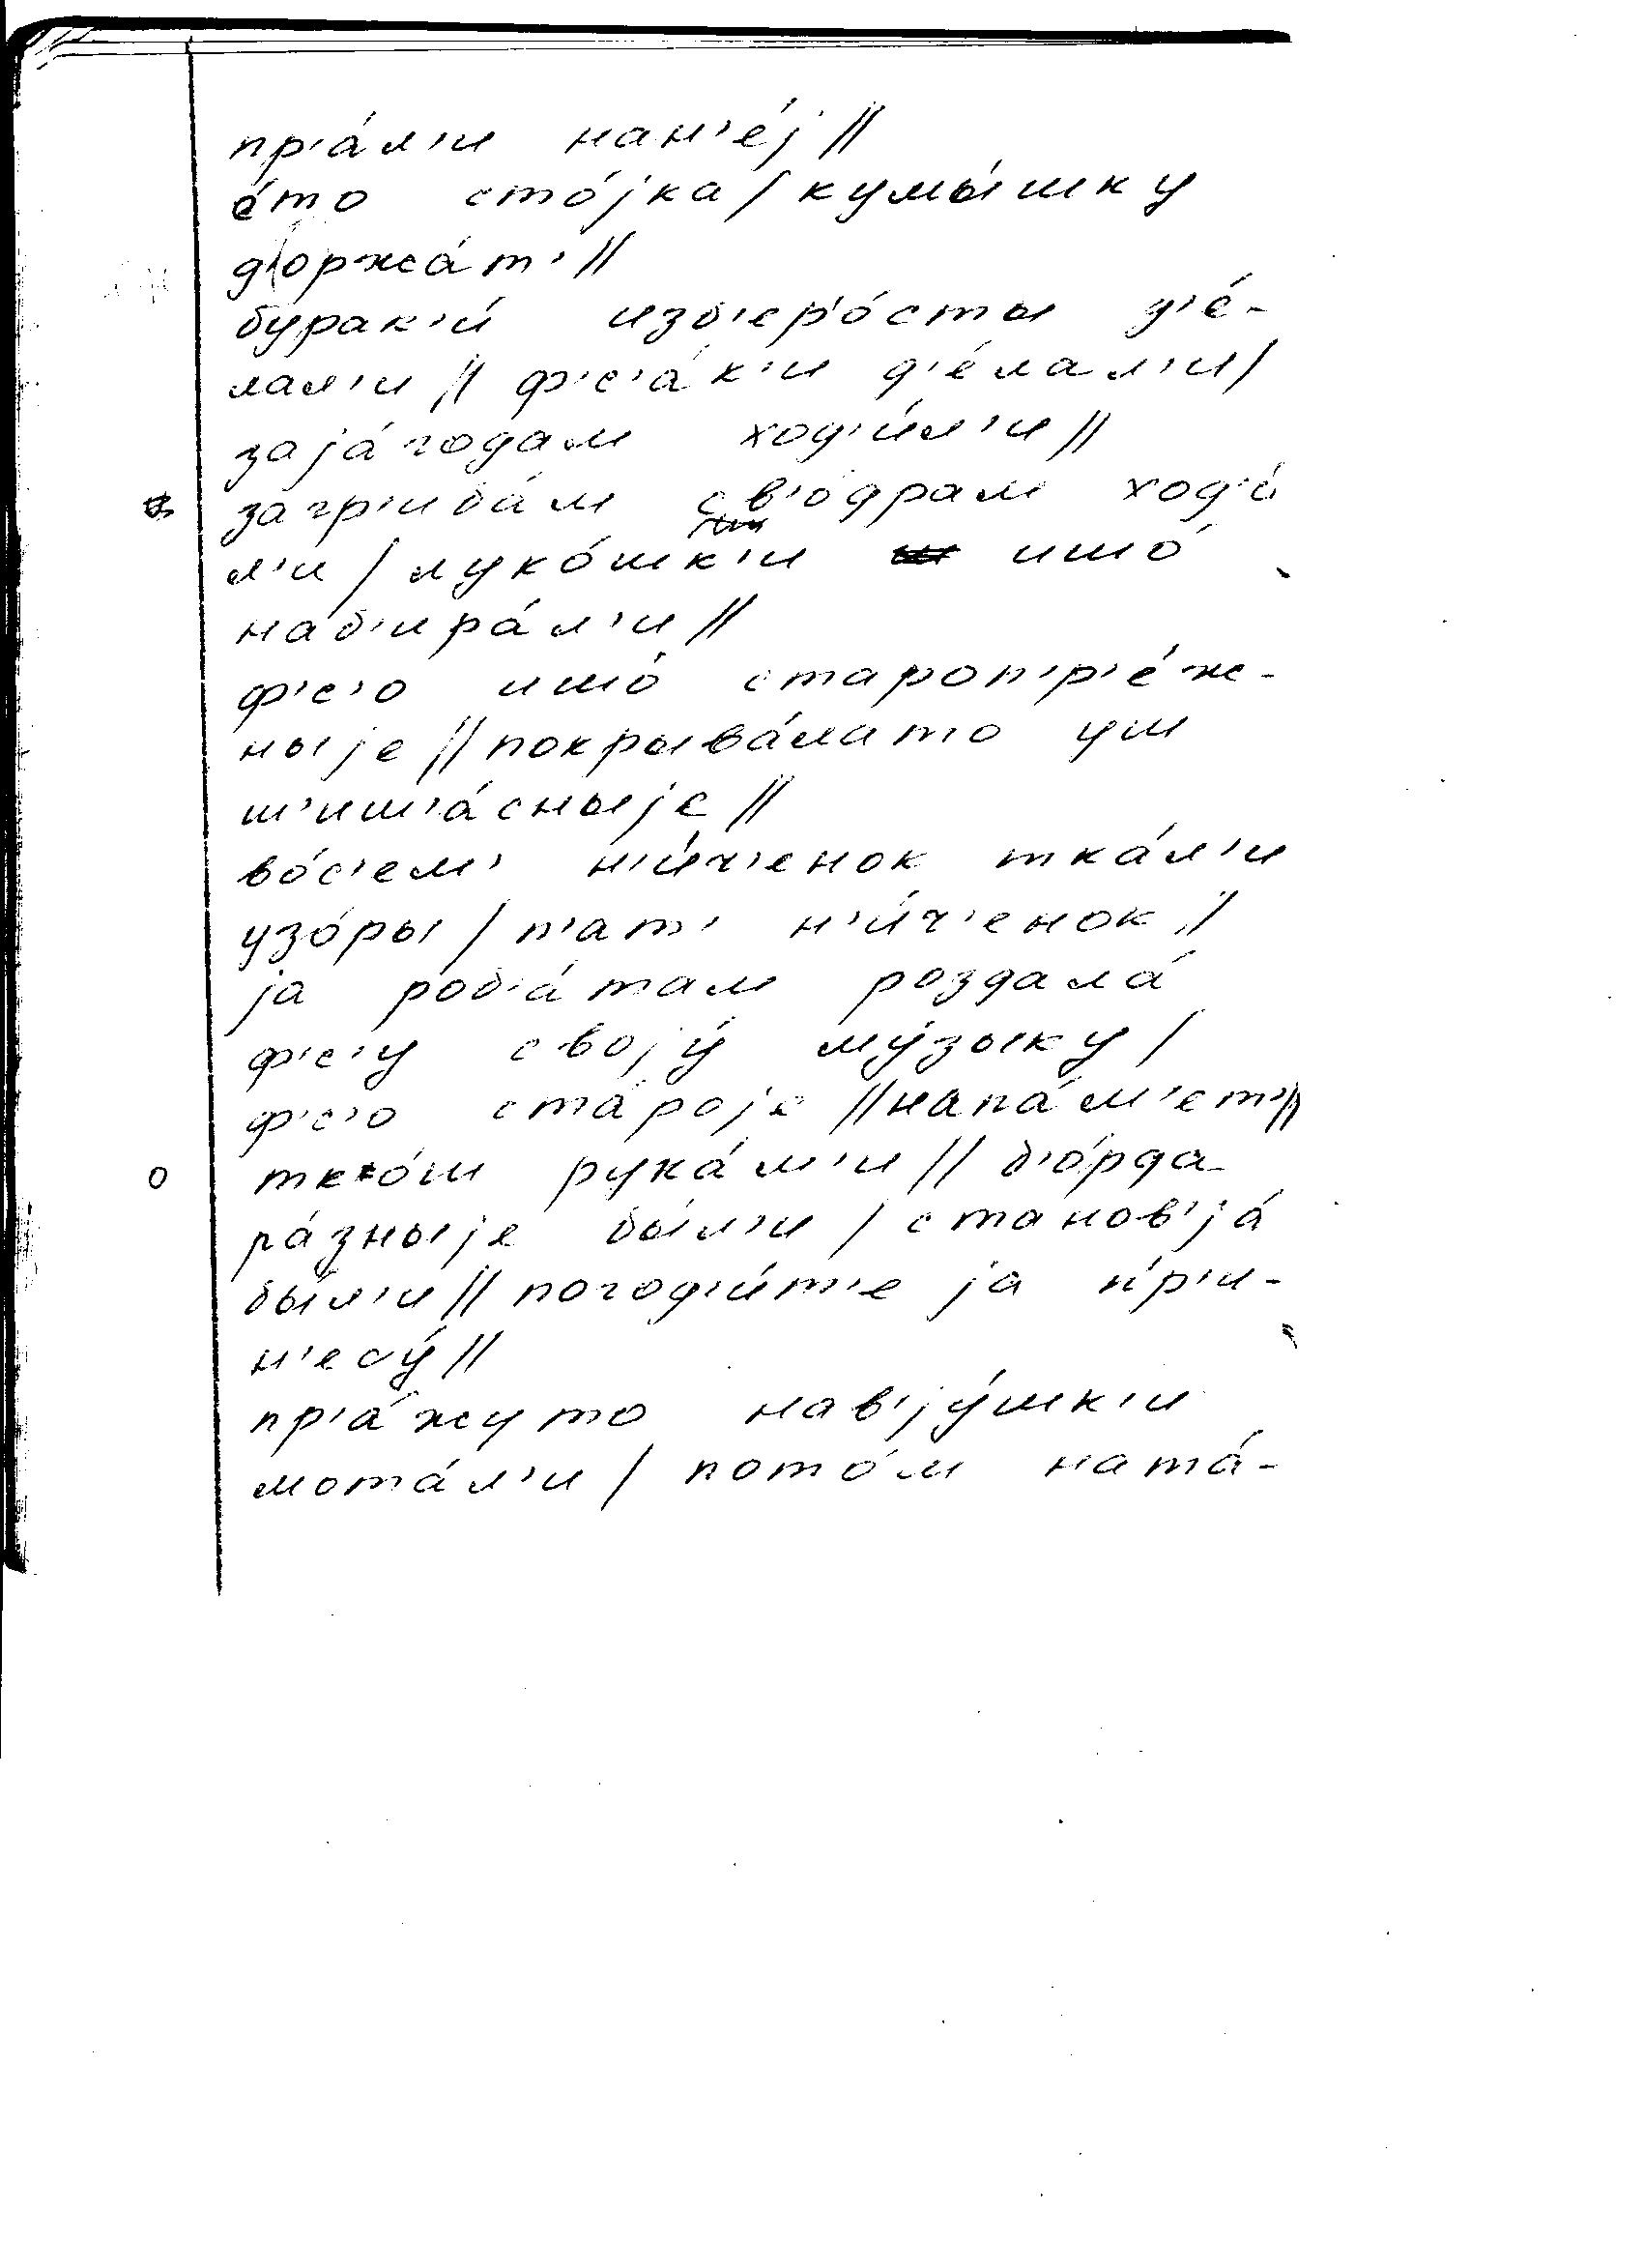 пр'а́л'и нан'е́j //
е́то сто́jка / кумы́шку
д'оржа́т' //
бурак'и́ изб'ер'о́сты д'е́-
лал'и // ф'с'а́к'и д'е́лал'и /
заjа́годам ход'и́л'и //
загр'иба́м св'о́драм ход'и́
л'и / луко́шк'и ишо́
наб'ира́л'и //
ф'с'о ишо́ старопр'е́ж-
ныjе // покрыва́лато уш
ш'иш'а́сныjе //
во́с'ем' н'и́ч'енок тка́л'и
узо́ры / п'ат' н'и́ч'енок //
jа роб'а́там роздала́
ф'с'у своjу́ му́зыку /
ф'с'о ста́роjе // напа́м'ет' //
о тко́ш рука́м'и // б'о́рда
ра́зныjе бы́л'и / станов'jа́
бы́л'и // погод'и́т'е jа пр'и-
н'есу́ //
пр'а́жуто нав'jу́шк'и
мота́л'и / пото́м ната́-